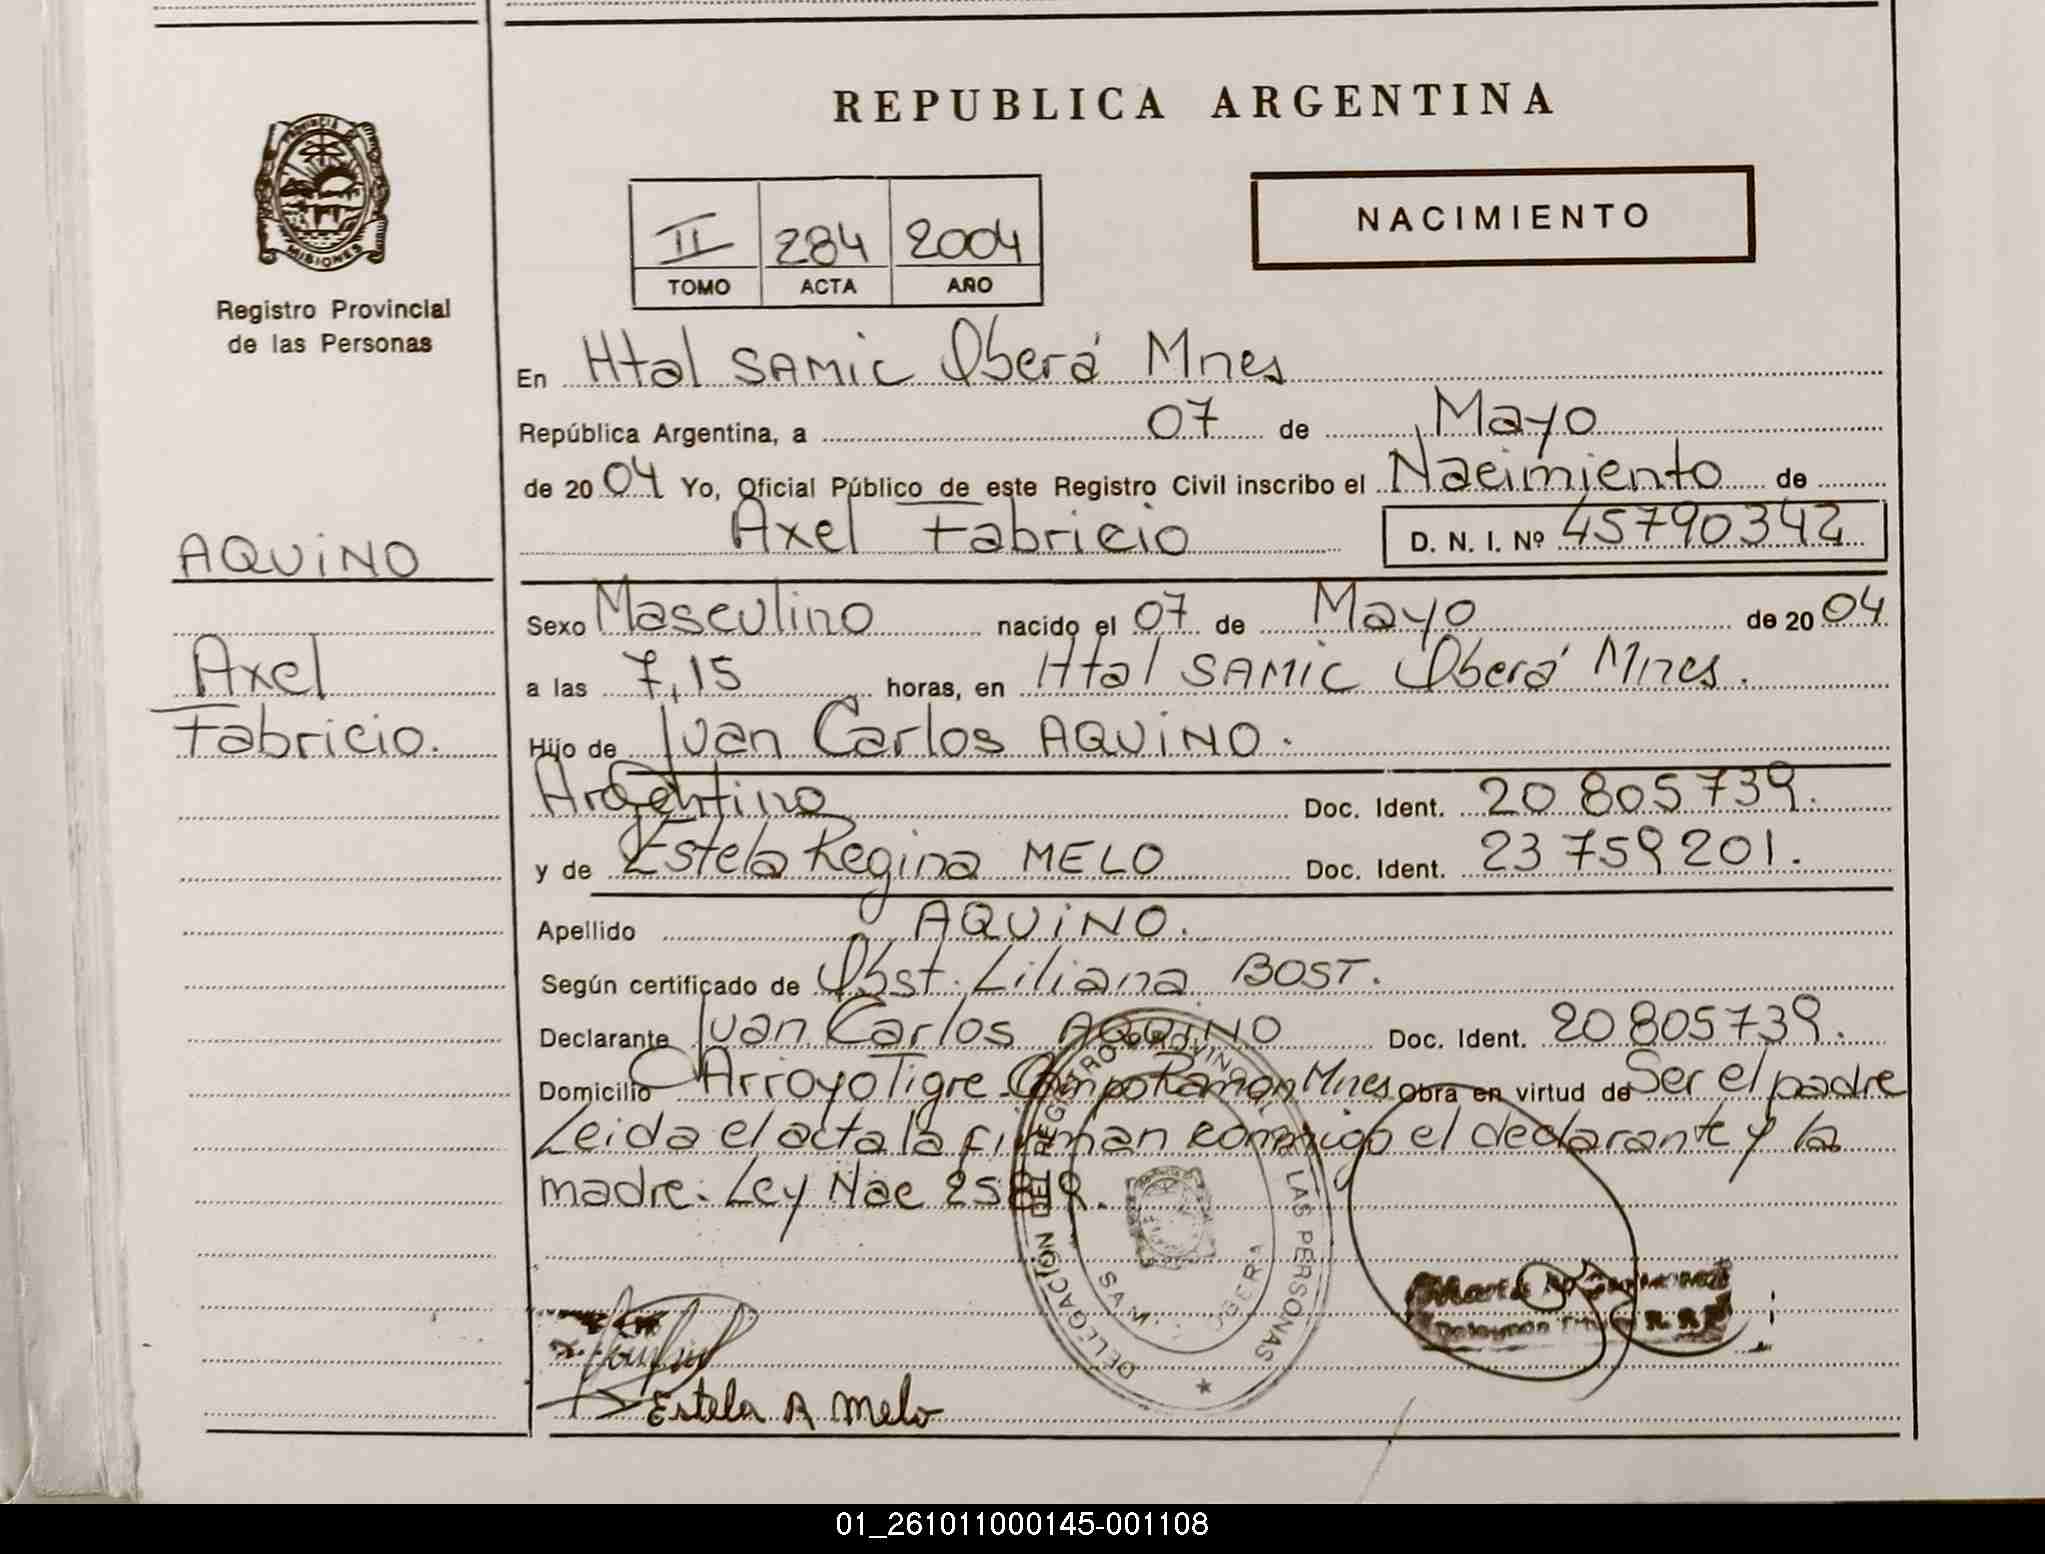 REPUBLICA ARGENTINA
PROVINCIA DE MISIONES
Registro Provincial
de las Personas
II 284 2004
TOMO ACTA AÑO
NACIMIENTO
En Htal SAMIC Oberá Mnes
República Argentina, a 07 de Mayo
de 2004 Yo, Oficial Público de este Registro Civil inscribo el Nacimiento de
Axel Fabricio D. N. I. Nº 45790342
AQUINO
Axel
Fabricio.
Sexo Masculino nacido el 07 de Mayo de 2004
a las 7,15 horas, en Htal SAMIC Oberá Mnes.
Hijo de Juan Carlos AQUINO.
Argentino Doc. Ident. 20 805739.
y de Estela Regina MELO Doc. Ident. 23 759201.
Apellido AQUINO.
Según certificado de Obst. Liliana BOST.
Declarante Juan Carlos AQUINO Doc. Ident. 20 805739.
Domicilio Arroyo Tigre Campo Ramon Mnes Obra en virtud de Ser el padre
Leida el acta la firman conmigo el declarante y la
madre. Ley Nac 25819.
DELEGACION DEL REGISTRO PROVINCIAL DE LAS PERSONAS
OBERA
Estela R Melo
01_261011000145-001108